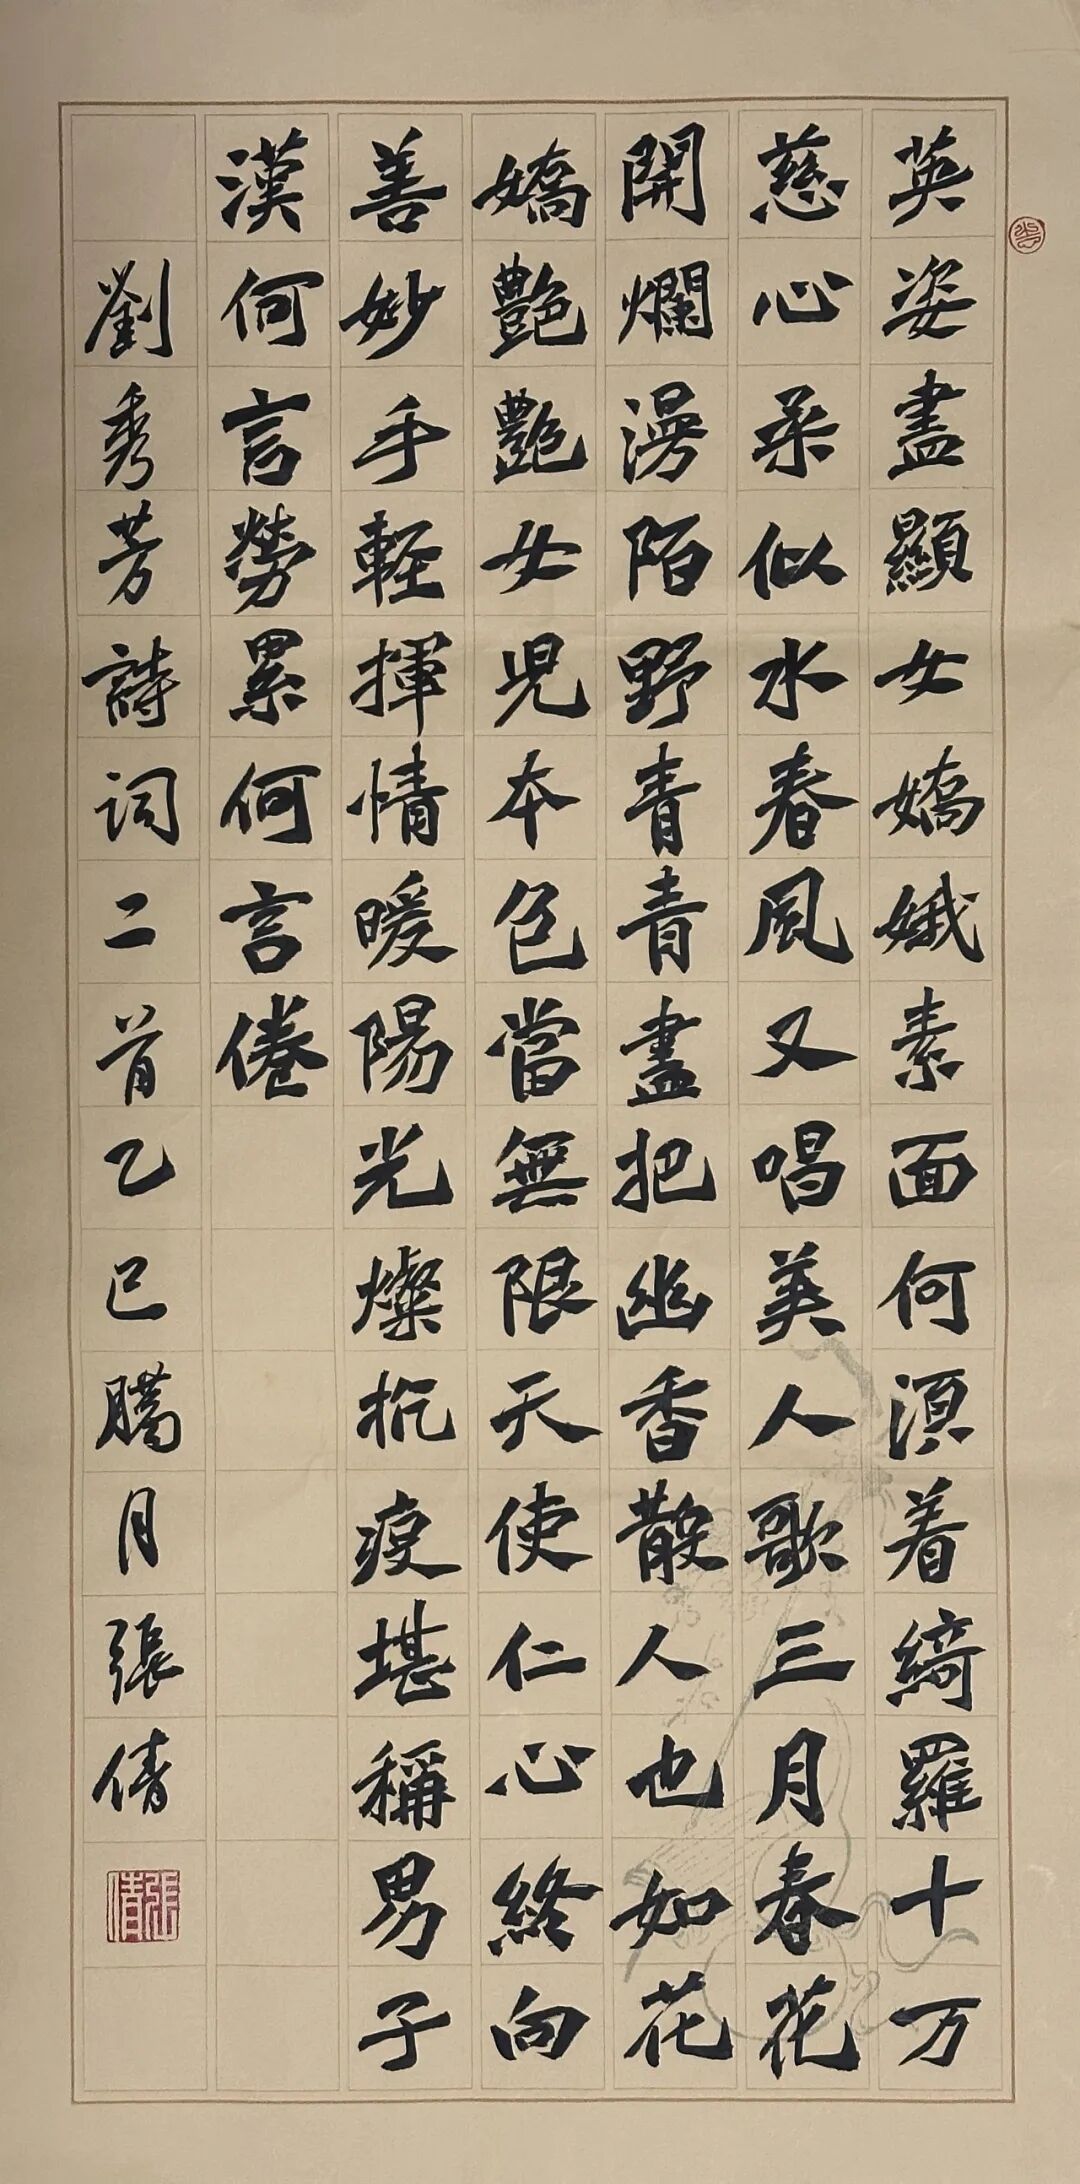 英姿盡顯女嬌娥素面何湏着綺羅十万
慈心柔似水春風又唱美人歌三月春花
開爛漫陌野青青盡把幽香散人也如花
嬌艷艷女児本色當無限天使仁心終向
善妙手輕揮情暖陽光燦抗疫堪稱男子
漢何言勞累何言倦
劉秀芳詩詞二首乙巳臈月張倩
張倩